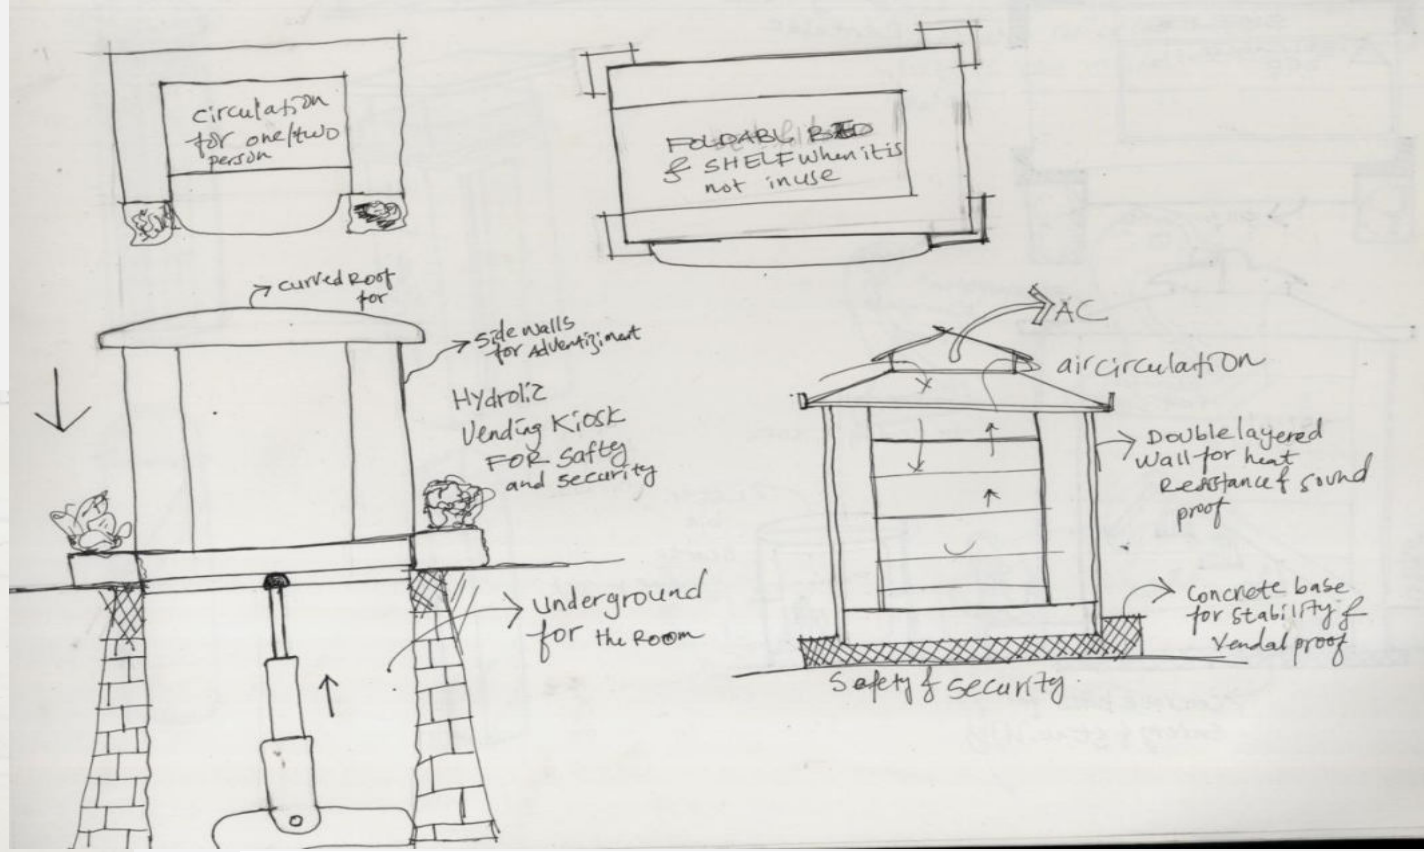 circulation
for one/two
person
FOLDABL BED
& SHELF when it is
not in use
curved Roof
for
Side walls
for Advertiziment
Hydrolic
Vending Kiosk
FOR Safty
and security
underground
for the Room
AC
air circulation
Double layered
Wall for heat
Resistance & sound
proof
Concrete base
for stability &
Vendal proof
Safety & security